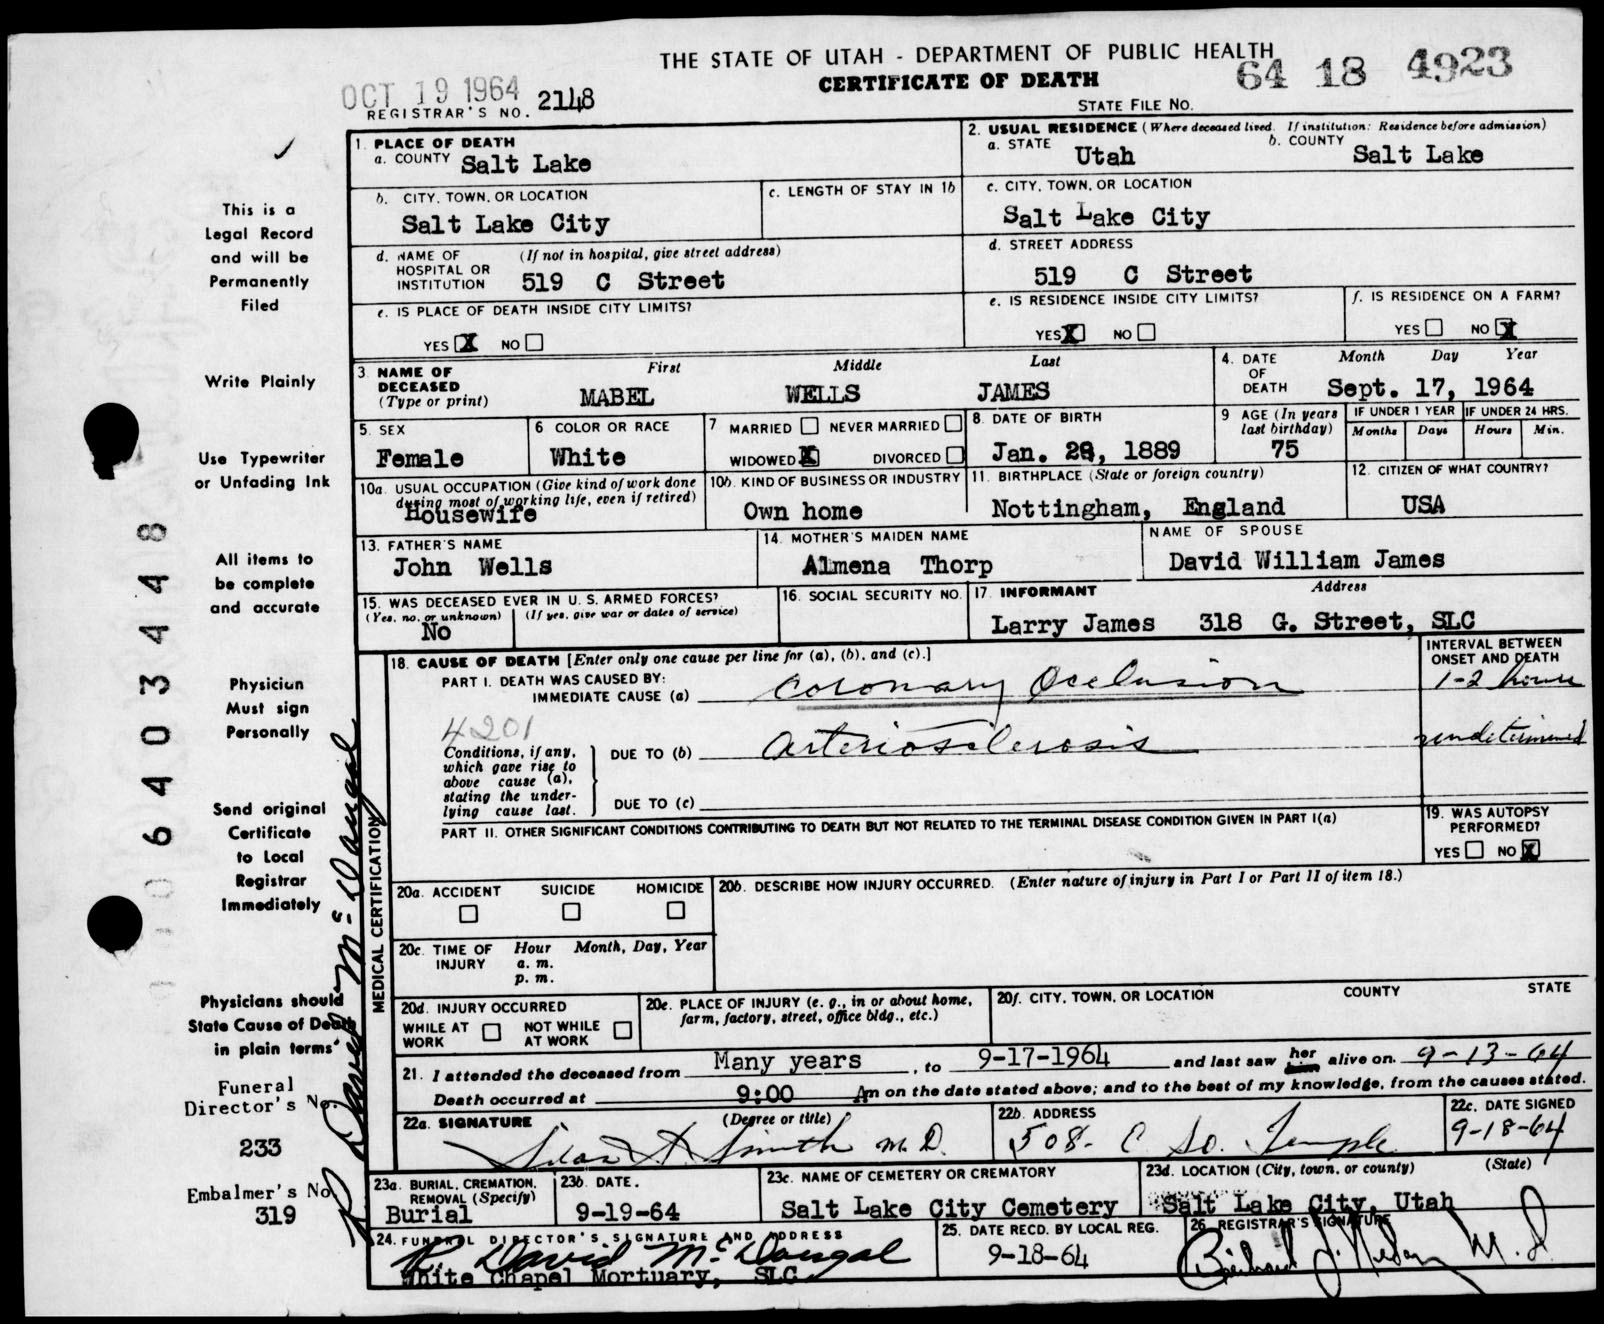 THE STATE OF UTAH - DEPARTMENT OF PUBLIC HEALTH
CERTIFICATE OF DEATH
64 18 4923
OCT 19 1964
REGISTRAR'S NO. 2148
STATE FILE NO.
This is a
Legal Record
and will be
Permanently
Filed
Write Plainly
Use Typewriter
or Unfading Ink
All items to
be complete
and accurate
Physician
Must sign
Personally
Send original
Certificate
to Local
Registrar
Immediately
Physicians should
State Cause of Death
in plain terms
Funeral
Director's No.
233
Embalmer's No
319
006403448
R David McDougal
1. PLACE OF DEATH
a. COUNTY Salt Lake
2. USUAL RESIDENCE (Where deceased lived. If institution: Residence before admission)
a. STATE Utah b. COUNTY Salt Lake
b. CITY, TOWN, OR LOCATION
Salt Lake City
c. LENGTH OF STAY IN 1b
c. CITY, TOWN, OR LOCATION
Salt Lake City
d. NAME OF HOSPITAL OR INSTITUTION (If not in hospital, give street address)
519 C Street
d. STREET ADDRESS
519 C Street
e. IS PLACE OF DEATH INSIDE CITY LIMITS?
YES X NO
e. IS RESIDENCE INSIDE CITY LIMITS?
YES X NO
f. IS RESIDENCE ON A FARM?
YES NO X
3. NAME OF DECEASED (Type or print)
First Middle Last
MABEL WELLS JAMES
4. DATE OF DEATH Month Day Year
Sept. 17, 1964
5. SEX
Female
6 COLOR OR RACE
White
7 MARRIED NEVER MARRIED
WIDOWED X DIVORCED
8 DATE OF BIRTH
Jan. , 1889
9 AGE (In years last birthday)
75
IF UNDER 1 YEAR IF UNDER 24 HRS.
Months Days Hours Min.
10a. USUAL OCCUPATION (Give kind of work done during most of working life, even if retired)
Housewife
10b. KIND OF BUSINESS OR INDUSTRY
Own home
11. BIRTHPLACE (State or foreign country)
Nottingham, England
12. CITIZEN OF WHAT COUNTRY?
USA
13. FATHER'S NAME
John Wells
14. MOTHER'S MAIDEN NAME
Almena Thorp
NAME OF SPOUSE
David William James
15. WAS DECEASED EVER IN U. S. ARMED FORCES?
(Yes, no, or unknown) (If yes, give war or dates of service)
No
16. SOCIAL SECURITY NO.
17. INFORMANT Address
Larry James 318 G. Street, SLC
MEDICAL CERTIFICATION
18. CAUSE OF DEATH [Enter only one cause per line for (a), (b), and (c).]
INTERVAL BETWEEN ONSET AND DEATH
PART I. DEATH WAS CAUSED BY:
IMMEDIATE CAUSE (a) Coronary Occlusion 1-2 hours
4201
Conditions, if any, which gave rise to above cause (a), stating the underlying cause last.
DUE TO (b) arteriosclerosis undetermined
DUE TO (c)
PART II. OTHER SIGNIFICANT CONDITIONS CONTRIBUTING TO DEATH BUT NOT RELATED TO THE TERMINAL DISEASE CONDITION GIVEN IN PART I(a)
19. WAS AUTOPSY PERFORMED?
YES NO X
20a. ACCIDENT SUICIDE HOMICIDE
20b. DESCRIBE HOW INJURY OCCURRED. (Enter nature of injury in Part I or Part II of item 18.)
20c. TIME OF INJURY Hour Month, Day, Year
a. m.
p. m.
20d. INJURY OCCURRED
WHILE AT WORK NOT WHILE AT WORK
20e. PLACE OF INJURY (e. g., in or about home, farm, factory, street, office bldg., etc.)
20f. CITY, TOWN, OR LOCATION COUNTY STATE
21. I attended the deceased from Many years, to 9-17-1964 and last saw her him alive on. 9-13-64
Death occurred at 9:00 Am on the date stated above; and to the best of my knowledge, from the causes stated.
22a. SIGNATURE (Degree or title)
Silas S. Smith M.D.
22b. ADDRESS
508- E So. Temple
22c. DATE SIGNED
9-18-64
23a. BURIAL, CREMATION, REMOVAL (Specify)
Burial
23b. DATE.
9-19-64
23c. NAME OF CEMETERY OR CREMATORY
Salt Lake City Cemetery
23d. LOCATION (City, town, or county) (State)
Salt Lake City, Utah
24. FUNERAL DIRECTOR'S SIGNATURE AND ADDRESS
R. David McDougal
White Chapel Mortuary, SLC
25. DATE RECD. BY LOCAL REG.
9-18-64
26 REGISTRAR'S SIGNATURE
M.D.